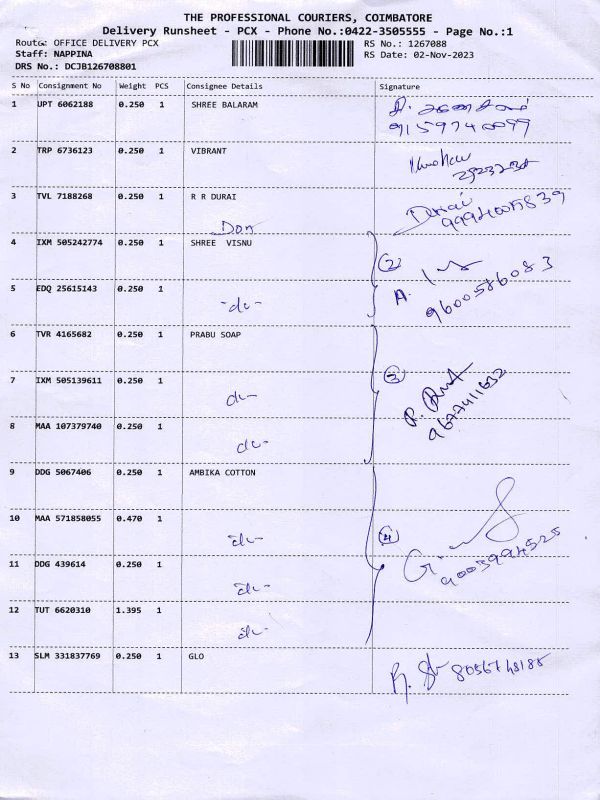 THE PROFESSIONAL COURIERS, COIMBATORE
Delivery Runsheet - PCX - Phone No.:0422-3505555 - Page No.:1
Route: OFFICE DELIVERY PCX RS No.: 1267088
Staff: NAPPINA RS Date: 02-Nov-2023
DRS No.: DCJB126708801
S No Consignment No Weight PCS Consignee Details Signature
1 UPT 6062188 0.250 1 SHREE BALARAM
9159740099
2 TRP 6736123 0.250 1 VIBRANT
3 TVL 7188268 0.250 1 R R DURAI Durai
Don
4 IXM 505242774 0.250 1 SHREE VISNU 2
5 EDQ 25615143 0.250 1 -do- A. 9600586083
6 TVR 4165682 0.250 1 PRABU SOAP
7 IXM 505139611 0.250 1 do- 3
8 MAA 107379740 0.250 1 do- 9677411632
9 DDG 5067406 0.250 1 AMBIKA COTTON
10 MAA 571858055 0.470 1 -do- 4
11 DDG 439614 0.250 1 -do- 9003994525
12 TUT 6620310 1.395 1 -do-
13 SLM 331837769 0.250 1 GLO 8056748185